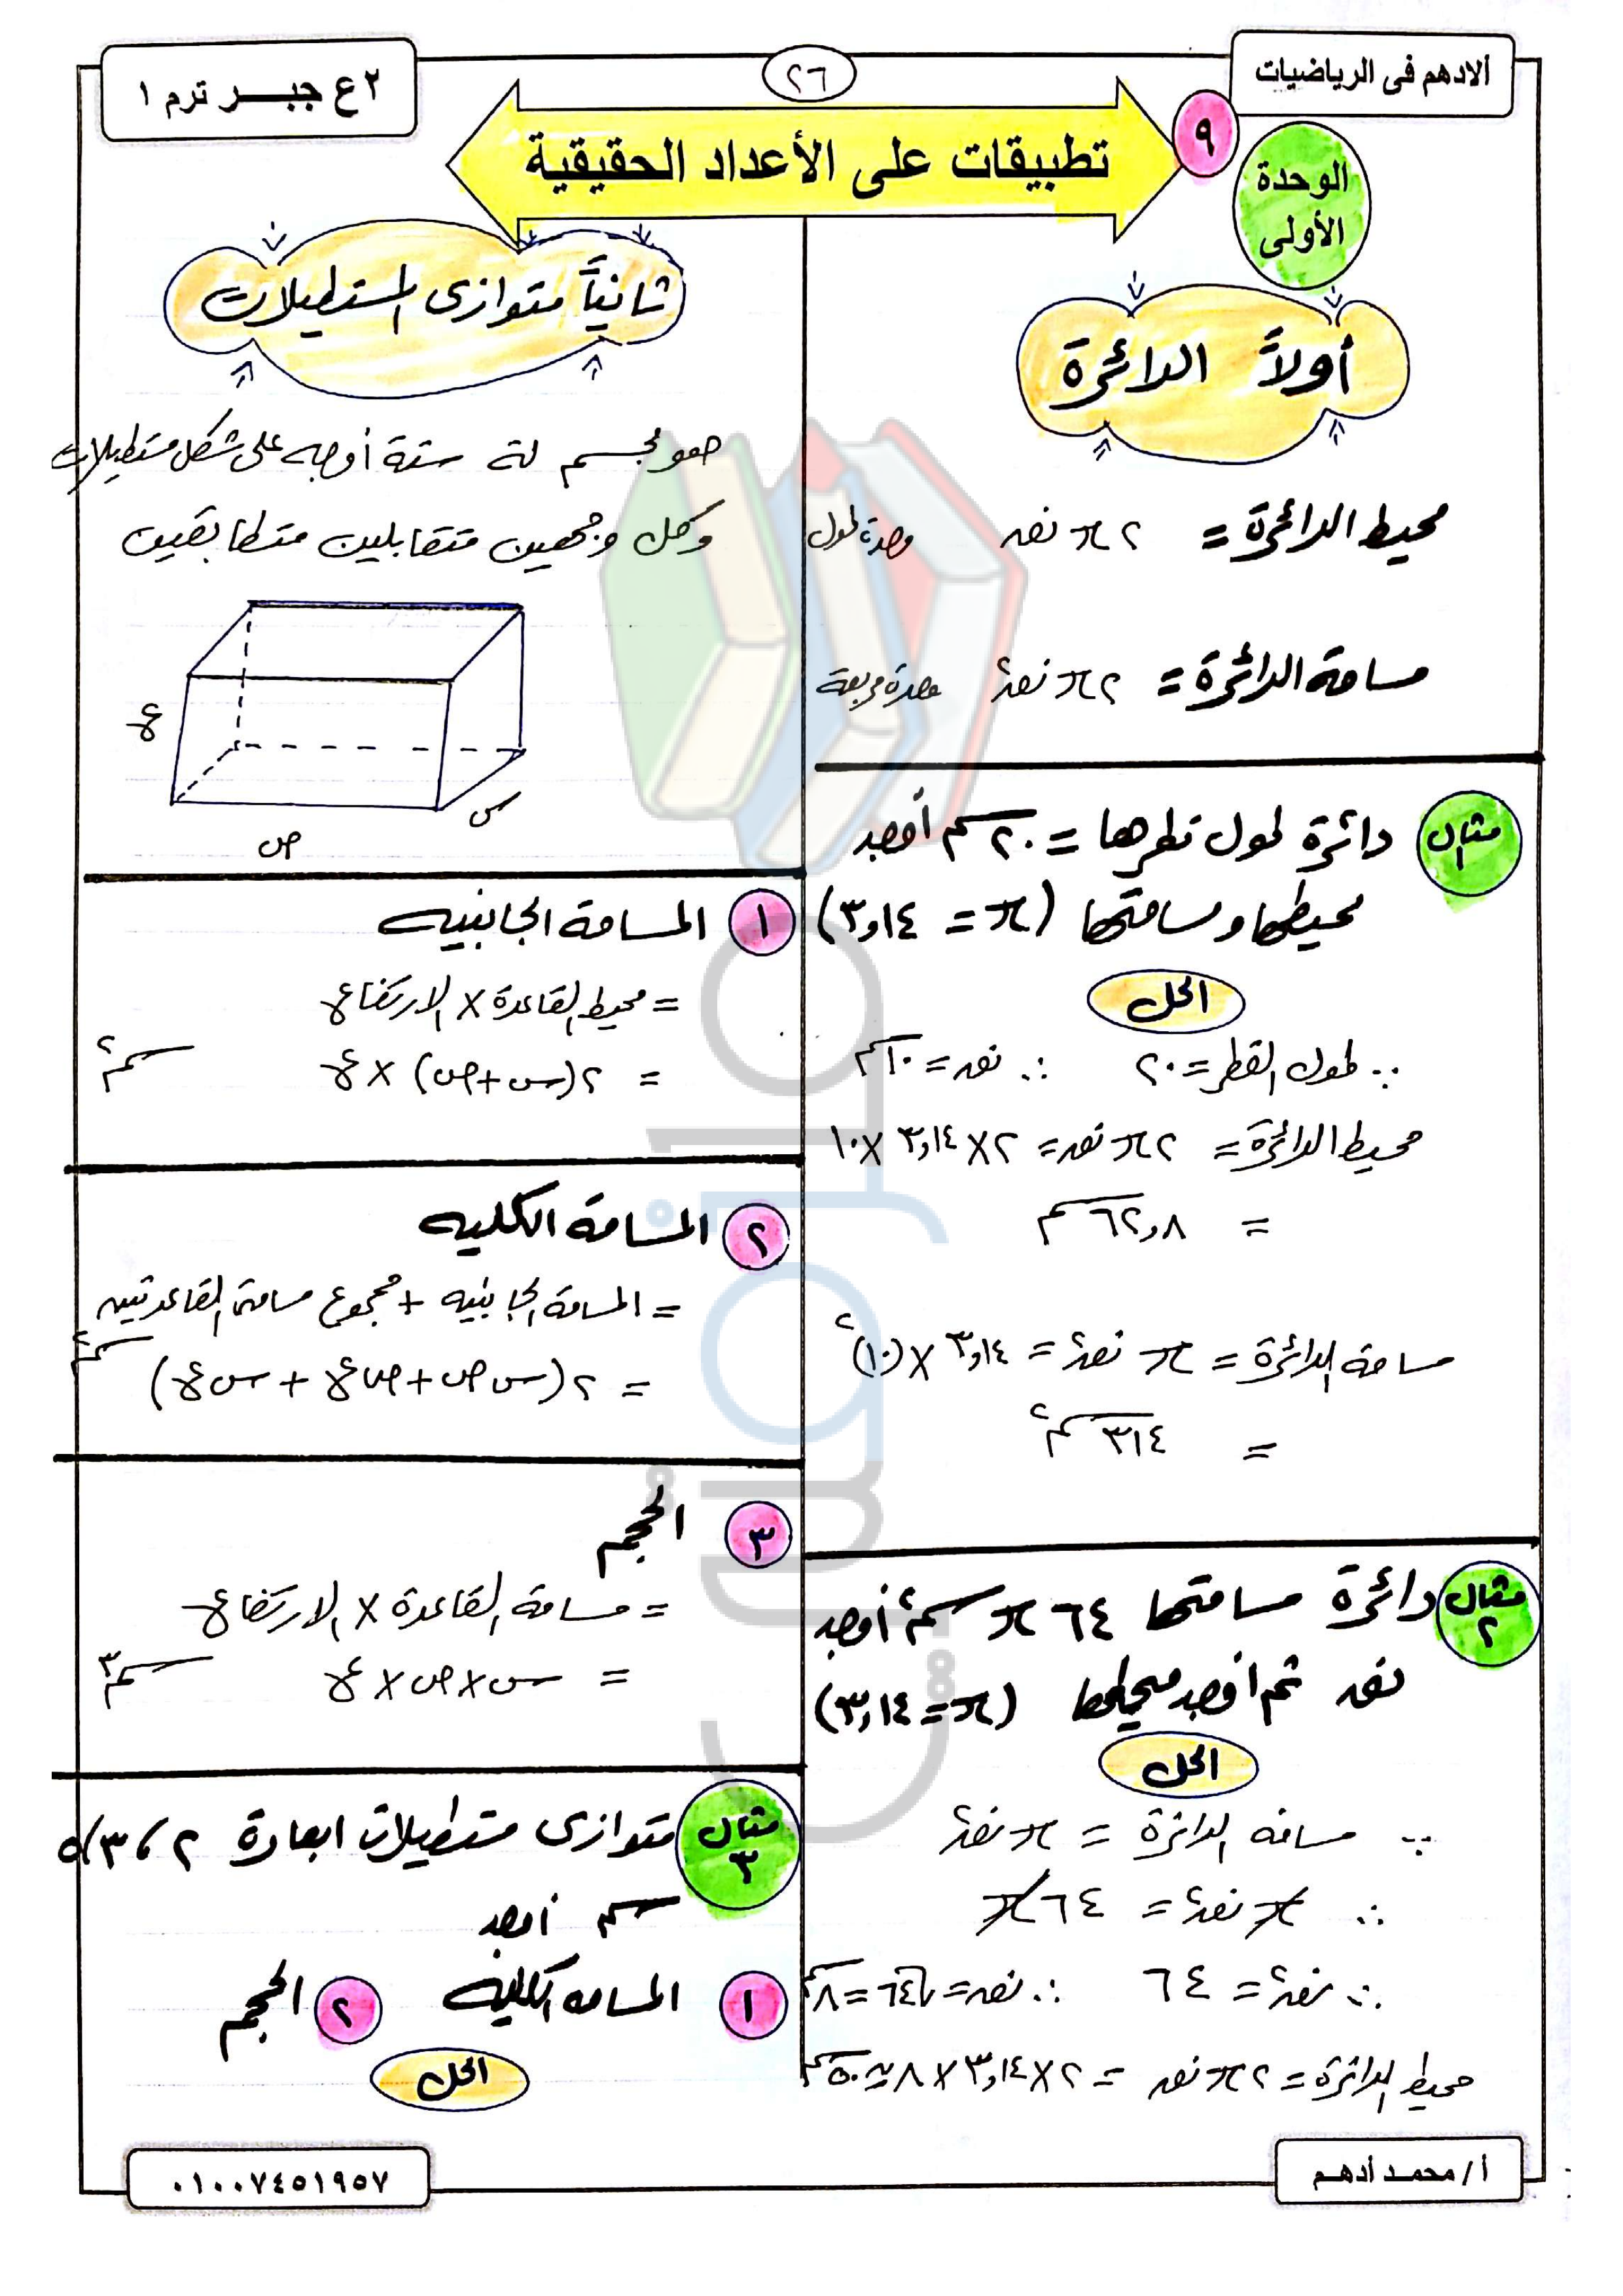 ألادهم فى الرياضيات
٢٦
٢ع جبر ترم ١
٩
تطبيقات على الأعداد الحقيقية
الوحدة
الأولى
أولاً الدائرة
محيط الدائرة = ٢ π نق وحدة طول
مساحة الدائرة = ٢ π نق٢ وحدة مربعة
مثال ١ دائرة طول قطرها = ٢٠ سم أوجد
محيطها ومساحتها (π = ٣,١٤)
الحل
∵ طول القطر = ٢٠ ∴ نق = ١٠ سم
محيط الدائرة = ٢ π نق = ٢ × ٣,١٤ × ١٠
= ٦٢,٨ سم
مساحة الدائرة = π نق٢ = ٣,١٤ × (١٠)٢
= ٣١٤ سم٢
مثال ٢ دائرة مساحتها ٦٤ π سم٢ أوجد
نق ثم أوجد محيطها (π = ٣,١٤)
الحل
∵ مساحة الدائرة = π نق٢
∴ π نق٢ = ٦٤ π
∴ نق٢ = ٦٤ ∴ نق = √٦٤ = ٨ سم
محيط الدائرة = ٢ π نق = ٢ × ٣,١٤ × ٨ ≃ ٥٠ سم
ثانياً متوازى المستطيلات
هو مجسم له ستة أوجه على شكل مستطيلات
وكل وجهين متقابلين متطابقين
ع
س
ص
١ المساحة الجانبية
= محيط القاعدة × الارتفاع
= ٢(س+ص) × ع سم٢
٢ المساحة الكلية
= المساحة الجانبية + مجموع مساحتى القاعدتين
= ٢(س ص + ص ع + س ع) سم٢
٣ الحجم
= مساحة القاعدة × الارتفاع
= س × ص × ع سم٣
مثال ٣ متوازى مستطيلات ابعادة ٢ ، ٣ ، ٥
سم أوجد
١ المساحة الكلية ٢ الحجم
الحل
أ / محمد أدهم
٠١٠٠٧٤٥١٩٥٧